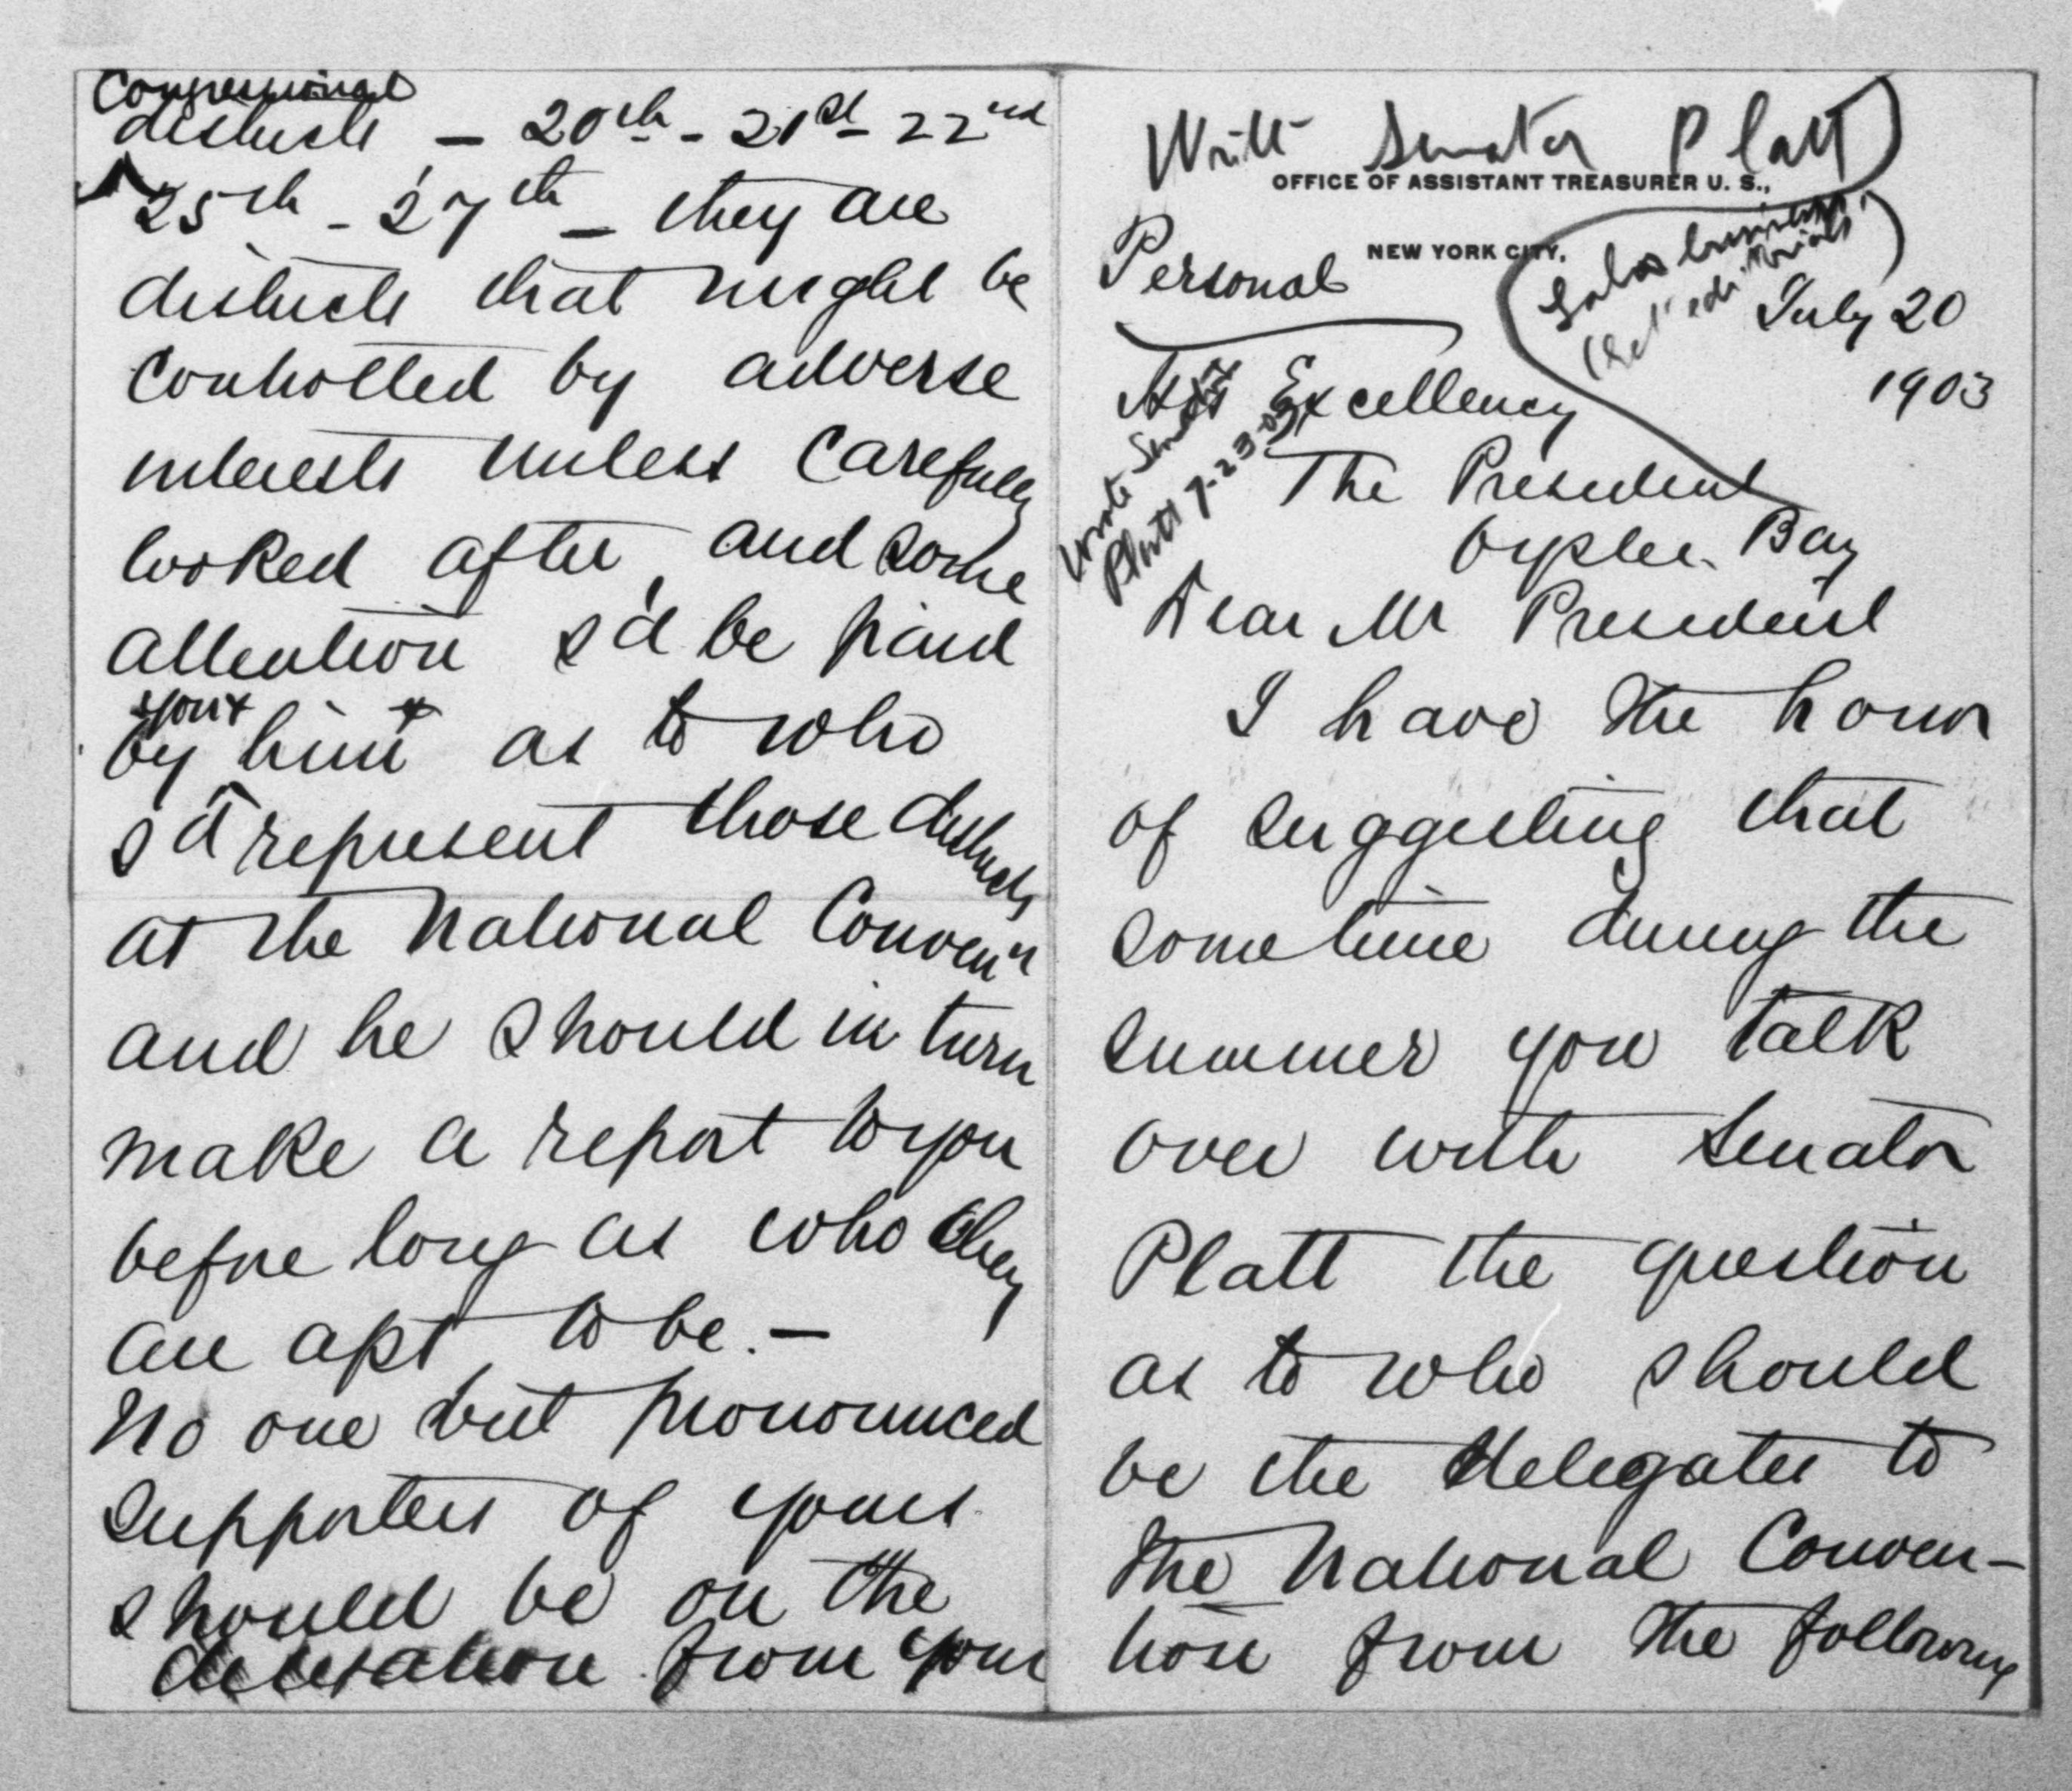 Write Senator Platt
OFFICE OF ASSISTANT TREASURER U. S.,
NEW YORK CITY,
Personal
July 20
1903
Wrote Senator
Platt 7-23-03
His Excellency
The President
Oyster Bay
Dear Mr President
I have the honor
of suggesting that
sometime during the
summer you talk
over with Senator
Platt the question
as to who should
be the delegates to
the National Conven-
tion from the following
Congressional
districts — 20th - 21st - 22nd
25th - 27th — they are
districts that might be
controlled by adverse
interests unless carefully
looked after, and some
attention s'd be paid
by you & him as to who
s'd represent those districts
at the National Conven'n
and he should in turn
make a report to you
before long as who they
are apt to be. —
No one but pronounced
supporters of yours
should be on the
delegation from your